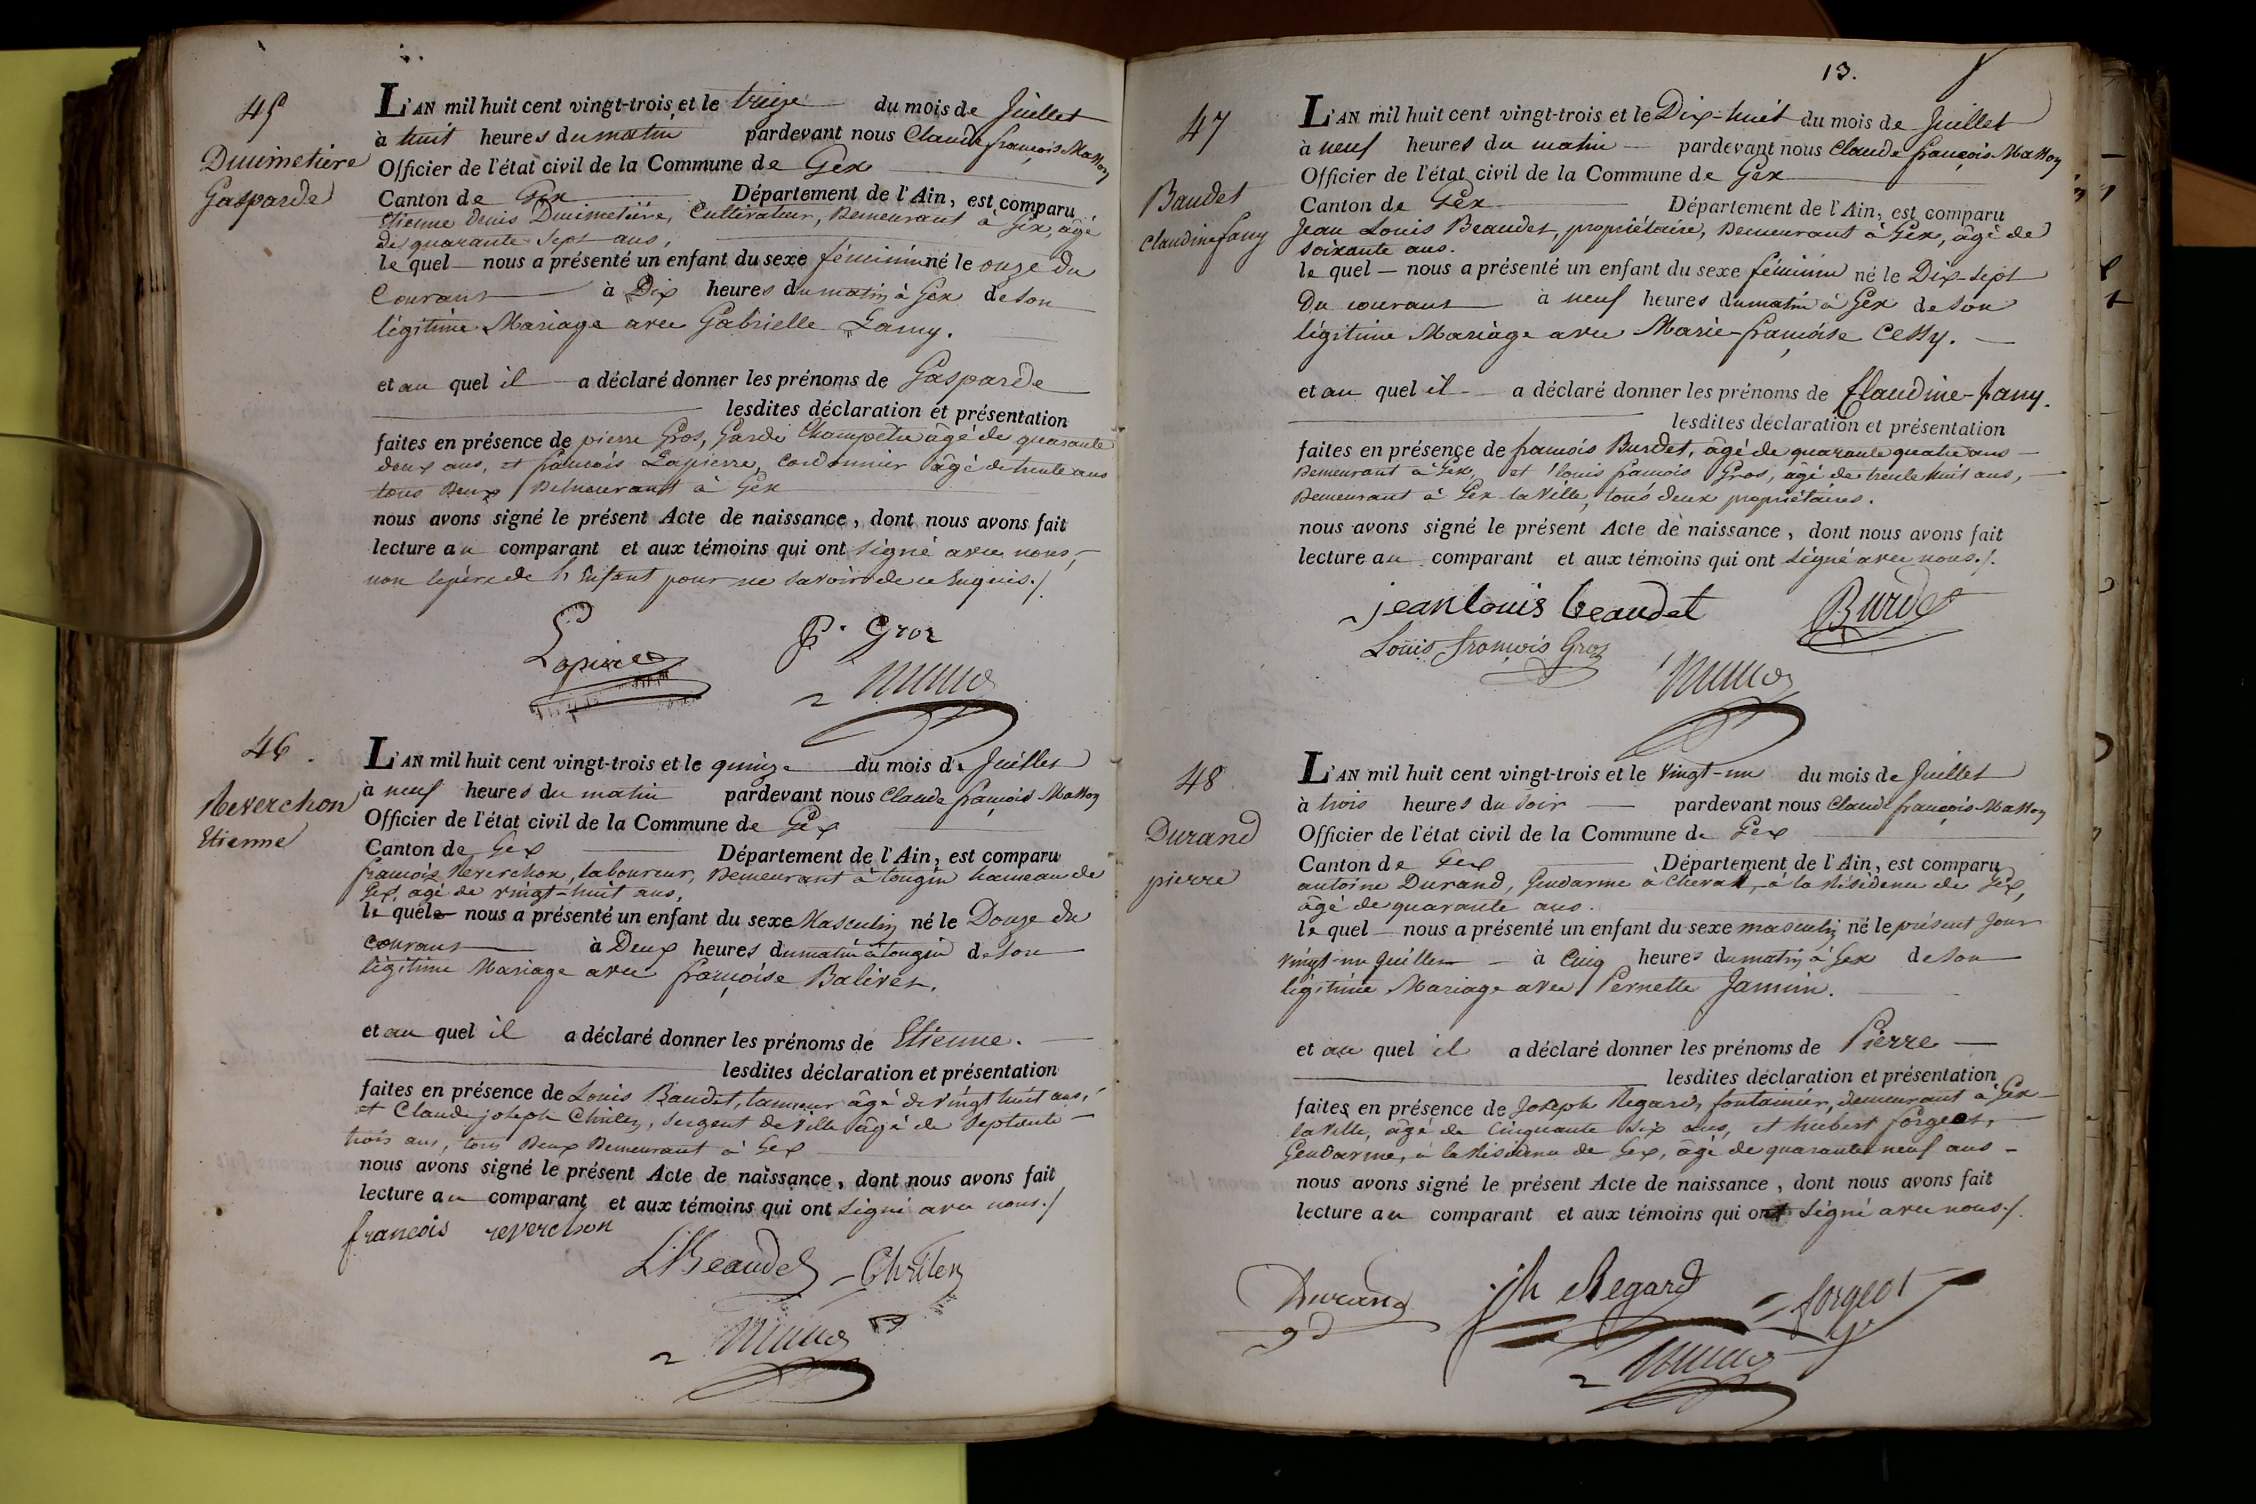 45
Duimetière
Gasparde
L'AN mil huit cent vingt-trois et le treize du mois de Juillet
à huit heures du matin pardevant nous Claude françois Masson
Officier de l'état civil de la Commune de Gex
Canton de Gex Département de l'Ain, est comparu
Etienne Denis Duimetière, Cultivateur, Demeurant à Gex, âgé
de quarante sept ans,
le quel nous a présenté un enfant du sexe féminin né le onze du
Courant à Dix heures du matin à Gex de son
légitime Mariage avec Gabrielle Lamy.
et au quel il a déclaré donner les prénoms de Gasparde
lesdites déclaration et présentation
faites en présence de pierre Gros, Garde Champêtre âgé de quarante
deux ans, et françois Lapierre, cordonnier âgé de trente ans
tous Deux Demeurant à Gex
nous avons signé le présent Acte de naissance, dont nous avons fait
lecture au comparant et aux témoins qui ont signé avec nous,
non le père de l'Enfant pour ne savoir de ce Enquis./.
Lapierre P. Gros
46.
Reverchon
Etienne
L'AN mil huit cent vingt-trois et le quinze du mois de Juillet
à neuf heures du matin pardevant nous Claude françois Masson
Officier de l'état civil de la Commune de Gex
Canton de Gex Département de l'Ain, est comparu
françois Reverchon, laboureur, Demeurant à tougin hameau de
Gex, âgé de vingt-huit ans,
le quel nous a présenté un enfant du sexe Masculin né le Douze du
courant à Deux heures du matin à tougin de son
légitime Mariage avec françoise Balivet.
et au quel il a déclaré donner les prénoms de Etienne.
lesdites déclaration et présentation
faites en présence de Louis Baudet, tanneur âgé de vingt huit ans,
et Claude joseph Chulen, sergent de ville âgé de septante
trois ans, tous Deux Demeurant à Gex
nous avons signé le présent Acte de naissance, dont nous avons fait
lecture au comparant et aux témoins qui ont signé avec nous./
francois reverchon
L Beaudet
13.
47
Baudet
Claudine fany
L'AN mil huit cent vingt-trois et le Dix-huit du mois de Juillet
à neuf heures du matin pardevant nous Claude françois Masson
Officier de l'état civil de la Commune de Gex
Canton de Gex Département de l'Ain, est comparu
Jean Louis Beaudet, propriétaire, Demeurant à Gex, âgé de
soixante ans.
le quel nous a présenté un enfant du sexe féminin né le Dix-sept
Du courant à neuf heures du matin à Gex de son
légitime Mariage avec Marie-françoise Cessy.
et au quel il a déclaré donner les prénoms de Claudine-fany.
lesdites déclaration et présentation
faites en présence de françois Burdet, âgé de quarante quatre ans
Demeurant à Gex, et louis françois Gros, âgé de trente huit ans,
Demeurant à Gex la Ville, tous deux propriétaires.
nous avons signé le présent Acte de naissance, dont nous avons fait
lecture au comparant et aux témoins qui ont signé avec nous./.
jean louis beaudet Burdet
Louis François Gros
48
Durand
pierre
L'AN mil huit cent vingt-trois et le vingt-un du mois de Juillet
à trois heures du soir pardevant nous Claude françois Masson
Officier de l'état civil de la Commune de Gex
Canton de Gex Département de l'Ain, est comparu
antoine Durand, Gendarme à cheval, à la Résidence de Gex,
âgé de quarante ans.
le quel nous a présenté un enfant du sexe masculin né le présent Jour
vingt-un Juillet à Cinq heures du matin à Gex de son
légitime Mariage avec Pernette Jamin.
et au quel il a déclaré donner les prénoms de Pierre
lesdites déclaration et présentation
faites en présence de Joseph Regard, fontainier, demeurant à Gex
la Ville, âgé de Cinquante Six ans, et hubert forgeot,
Gendarme, à la Résidence de Gex, âgé de quarante neuf ans
nous avons signé le présent Acte de naissance, dont nous avons fait
lecture au comparant et aux témoins qui ont signé avec nous./.
Durand jh Regard forgeot